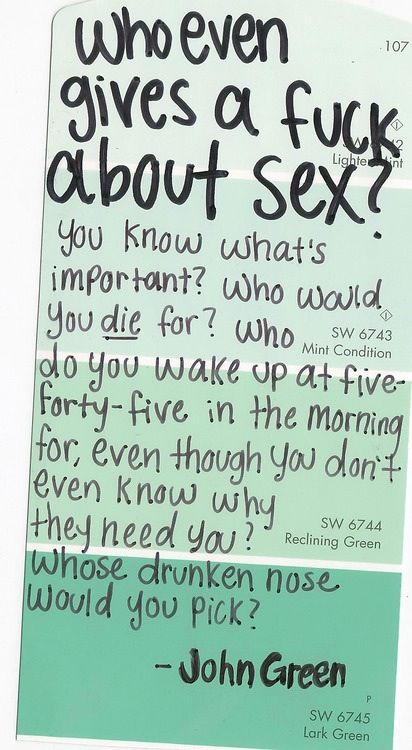 who even
107
gives a fuck
Lighter Mint
about sex?
you know what's
important? Who would
you die for? Who
SW 6743
Mint Condition
do you wake up at five-
forty-five in the morning
for, even though you don't
even know why
they need you?
SW 6744
Reclining Green
whose drunken nose
would you pick?
- John Green
P
SW 6745
Lark Green